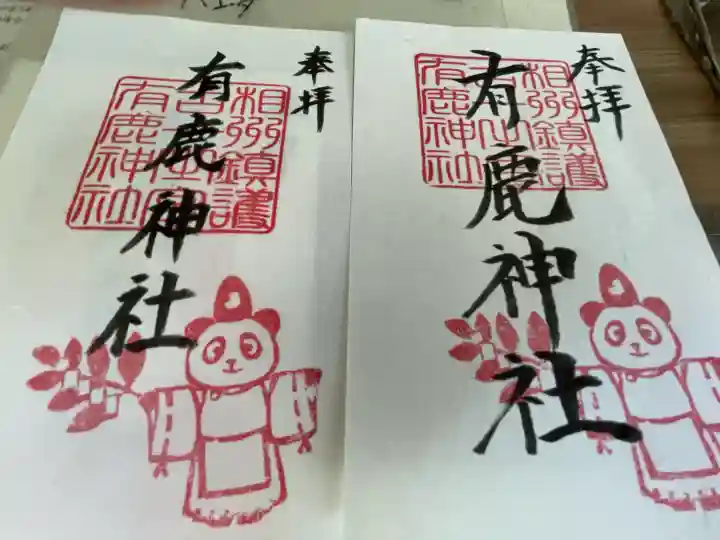 奉拝
有鹿神社
相州鎮護
有鹿神社
奉拝
有鹿神社
相州鎮護
有鹿神社